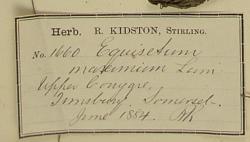 Herb. R. KIDSTON, STIRLING.
No. 1660 Equisetum
maximum Lam
Upper Conygre,
Timsbury. Somerset.
June 1884. Rk